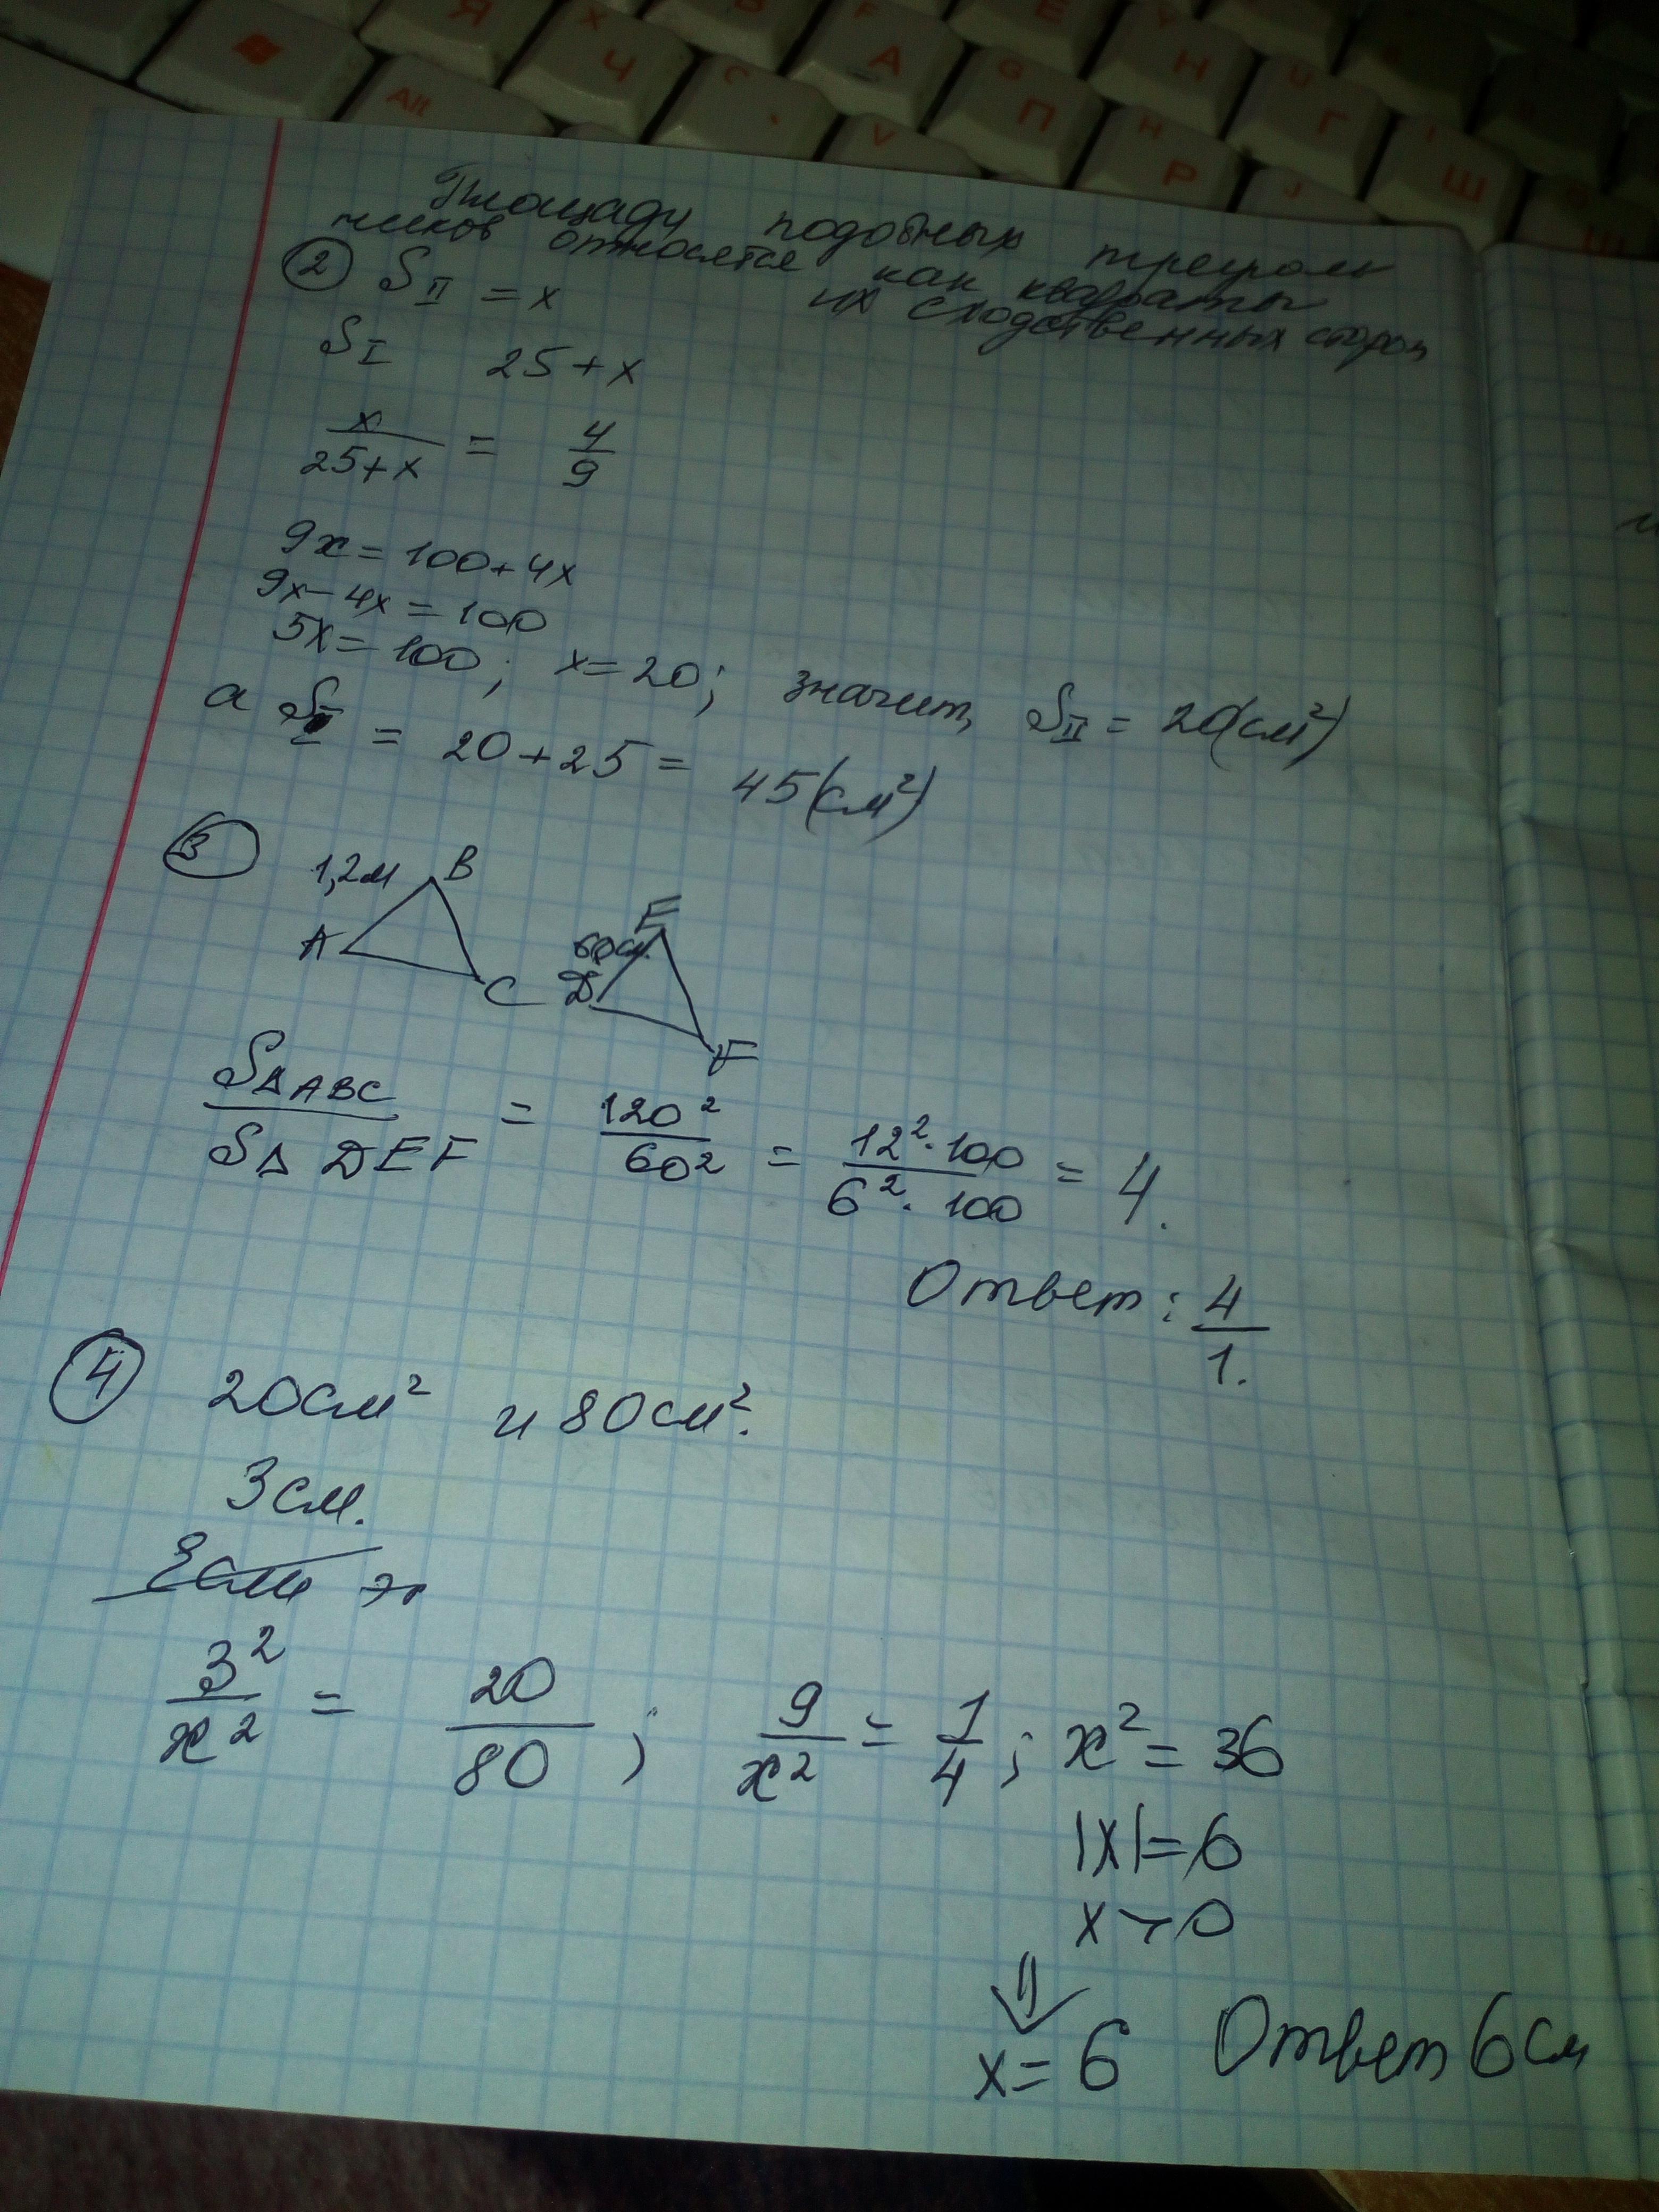 Я
Ч
С
F А
Е
Н
Alt
V
G П
U Г
H Р
J
I Ш
Площади подобных треуголь
ников относятся как квадраты
их сходственных сторон
2 S II = x
S I 25+x
x/(25+x) = 4/9
9x = 100+4x
9x-4x = 100
5x = 100; x=20; значит, S II = 20(см²)
а S I = 20+25 = 45(см²)
3
1,2м B
A C
E
60см
D F
S△ABC/S△DEF = 120²/60² = 12²·100/6²·100 = 4.
Ответ: 4/1.
4 20см² и 80см².
3см.
3²/x² = 20/80; 9/x² = 1/4; x² = 36
|x|=6
x>0
⇓
x=6 Ответ 6см